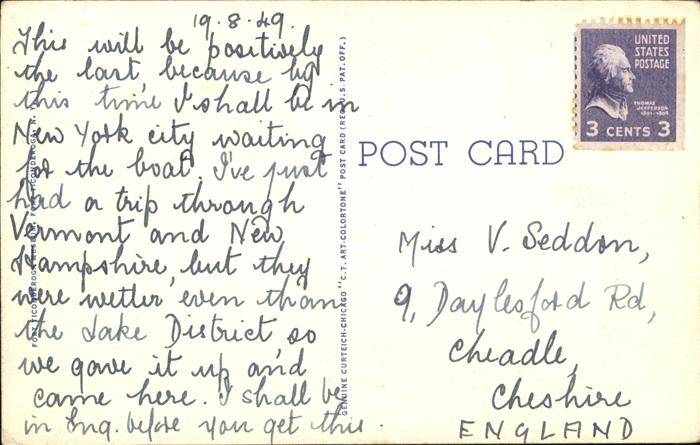 19.8.49.
This will be positively
the last, because by
this time I shall be in
New York city waiting
for the boat. I've just
had a trip through
Vermont and New
Hampshire, but they
were wetter even than
the Lake District, so
we gave it up and
came here. I shall be
in Eng. before you get this.
GENUINE CURTEICH-CHICAGO "C.T. ART-COLORTONE" POST CARD (REG. U.S. PAT. OFF.)
POST CARD
UNITED
STATES
POSTAGE
THOMAS
JEFFERSON
1801-1809
3 CENTS 3
Miss V. Seddon,
9, Daylesford Rd,
Cheadle,
Cheshire
ENGLAND